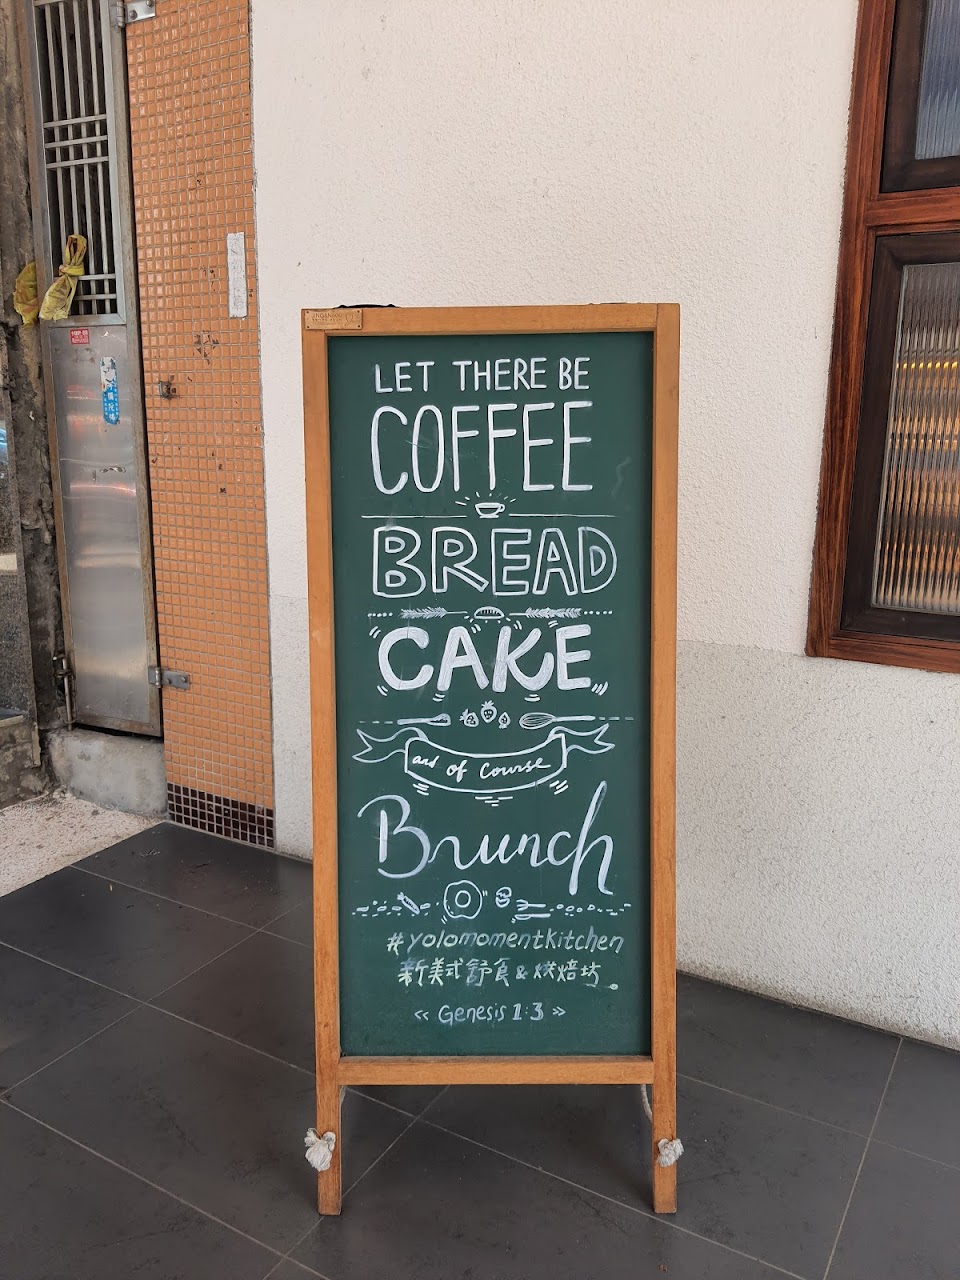 LET THERE BE
COFFEE
BREAD
CAKE
and of course
Brunch
#yolomomentkitchen
新美式舒食&烘焙坊。
<< Genesis 1:3 >>